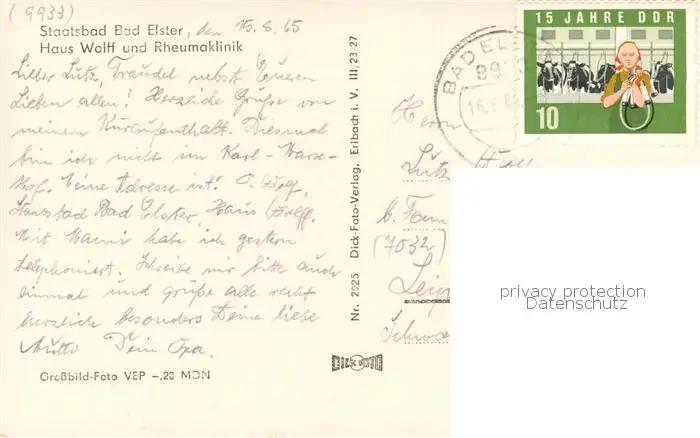 (9933)
Staatsbad Bad Elster, den 15.8.65
Haus Wolff und Rheumaklinik
Lieber Lutz, Traudel nebst Eueren
Lieben allen! Herzliche Grüße von
meinem Kuraufenthalt. Diesmal
bin ich nicht im Karl-Marx-
Hof. Meine Adresse ist: O.
Staatsbad Bad Elster, Haus Wolff.
Mit Mami habe ich gestern
telephoniert. Schreibe mir bitte auch
einmal und grüße alle recht
herzlich besonders Deine liebe
Mutti Dein Opa.
Großbild-Foto VEP -,20 MDN
Nr. 2925 Dick-Foto-Verlag, Erlbach i. V. III/23/27
DICK FOTO
BAD EL
99
15 JAHRE DDR
10
Herrn
Lutz
b.
(7032)
Leip
privacy protection
Datenschutz